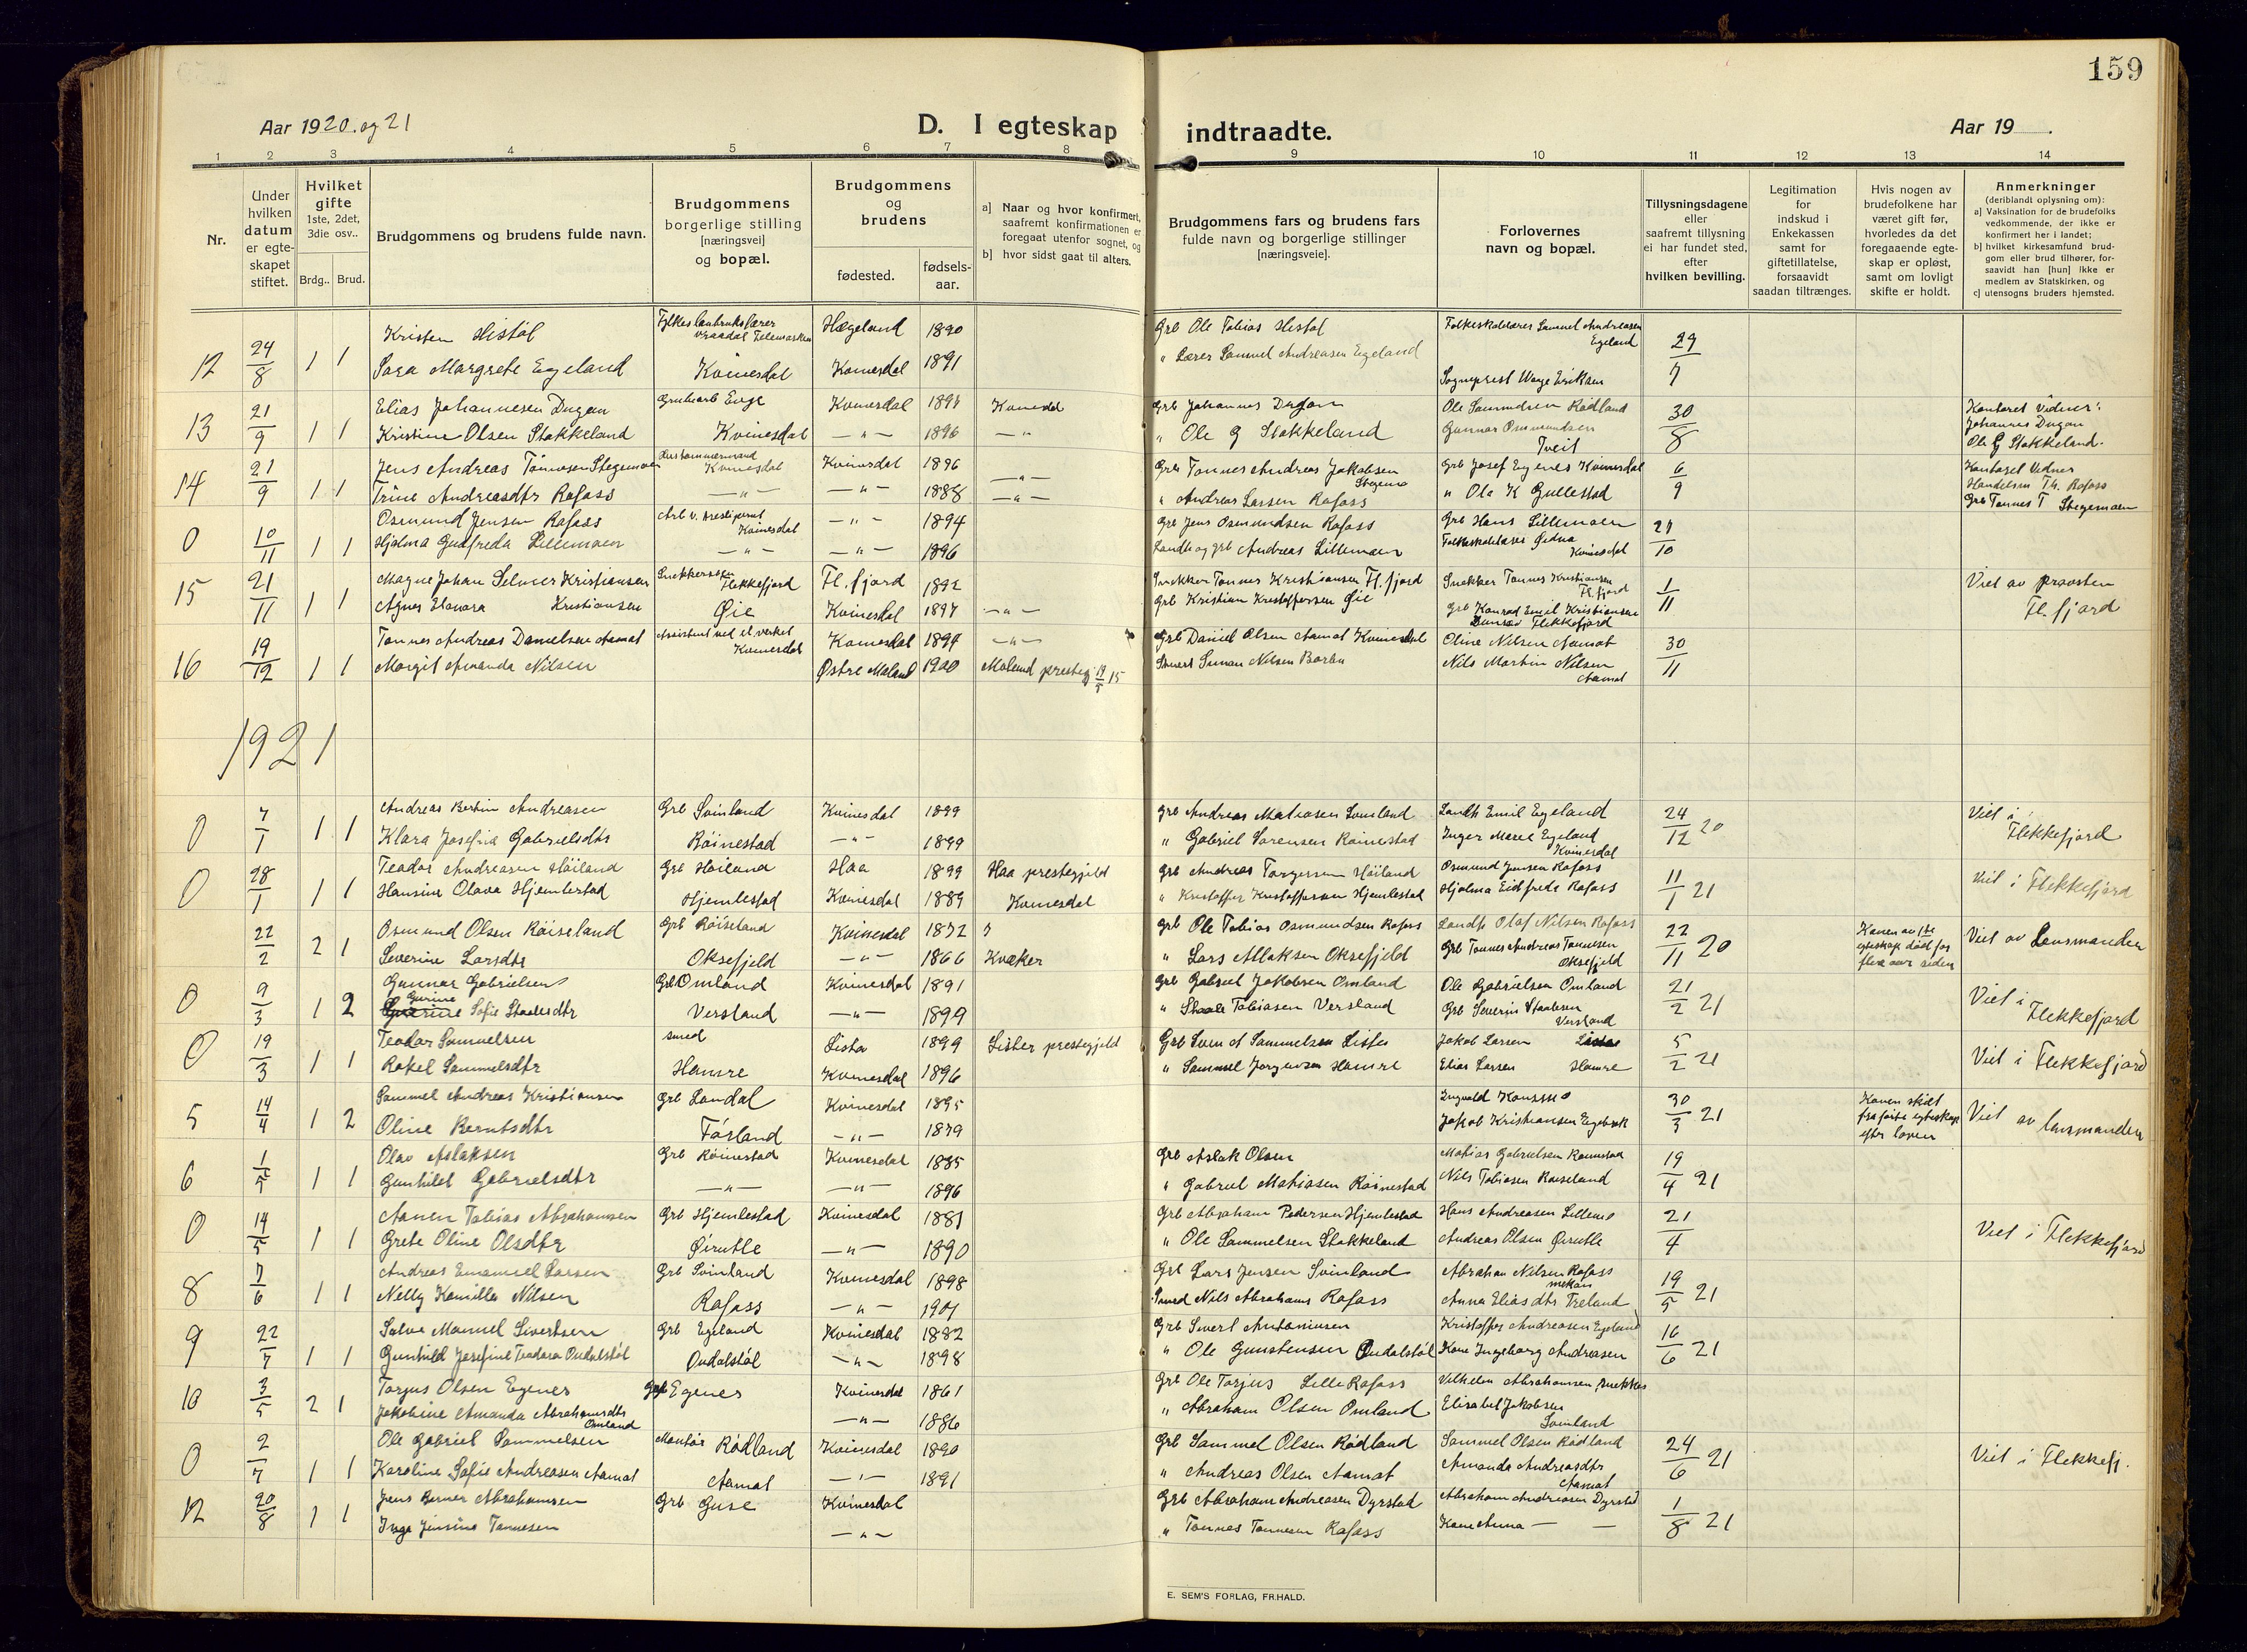 159
Aar 1920. og 21
D. I egteskap indtraadte.
Aar 19
1 2 3 4 5 6 7 8 9 10 11 12 13 14
Nr.
Under hvilken datum er egte-skapet stiftet.
Hvilket gifte 1ste, 2det, 3die osv..
Brdg.. Brud.
Brudgommens og brudens fulde navn.
Brudgommens borgerlige stilling [næringsvei] og bopæl.
Brudgommens og brudens
fødested.
fødsels-aar.
a] Naar og hvor konfirmert, saafremt konfirmationen er foregaat utenfor sognet, og
b] hvor sidst gaat til alters.
Brudgommens fars og brudens fars fulde navn og borgerlige stillinger [næringsveie].
Forlovernes navn og bopæl.
Tillysningsdagene eller saafremt tillysning ei har fundet sted, efter hvilken bevilling.
Legitimation for indskud i Enkekassen samt for giftetillatelse, forsaavidt saadan tiltrænges.
Hvis nogen av brudefolkene har været gift før, hvorledes da det foregaaende egte-skap er opløst, samt om lovligt skifte er holdt.
Anmerkninger (deriblandt oplysning om):
a] Vaksination for de brudefolks vedkommende, der ikke er konfirmert her i landet;
b] hvilket kirkesamfund brud-gom eller brud tilhører, for-saavidt han [hun] ikke er medlem av Statskirken, og
c] utensogns bruders hjemsted.
12 24/8 1 1 Kristen Histøl Hægeland 1890 Grb Ole Tobias Histøl Folkeskolelærer Samuel Andreasen Egeland 29/7
Sara Margrete Egeland Kvinesdal Kvinesdal 1891 " Lærer Samuel Andreasen Egeland Sogneprest
13 21/9 1 1 Elias Johannesen Dugan Kvinesdal Kvinesdal Grb Johannes Dugan Ole Samuelsen Rødland 30/8
Kristine Olsen Stokkeland Kvinesdal — " — 1896 — " " Ole G Stokkeland Gunnar Osmundsen Tveit
Johannes Dugan
Ole G Stokkeland.
14 21/9 1 1 Jens Andreas Tønnesen Stegemoen Kvinesdal Kvinesdal 1896 — " — Grb Tønnes Andreas Jakobsen Stegemo Grb Josef Egenes Kvinesdal 6/9
Trine Andreasdtr Rafoss — " — — " — 1888 — " — " Andreas Larsen Rafoss " Ole K Gullestad
Grb Tønnes T Stegemoen
0 10/11 1 1 Osmund Jensen Rafoss Kvinesdal — " — 1894 Grb Jens Osmundsen Rafoss Grb Hans Lillemoen
Hjalma Gudfreda Lillemoen — " — — " — 1896 Landh og grb Andreas Lillemoen Folkeskolelærer Kvinesdal
15 21/11 1 1 Magne Johan Selmer Kristiansen Flekkefjord Fl. fjord 1892 Snekker Tønnes Kristiansen Fl. fjord Snekker Tønnes Kristiansen Fl. fjord 1/11 Viet av provsten
Agnes Kristiansen Øie Kvinesdal 1897 — " — Grb Kristian Kristoffersen Øie Grb Konrad Emil Kristiansen Flekkefjord Fl. fjord
16 19/12 1 1 Tønnes Andreas Danielsen Aamot Assistent ved el. verket Kvinesdal Kvinesdal — " — Grb Daniel Olsen Aamot Kvinesdal Oline Nilsen Aamot 30/11
Margit Amanda Nilsen Østre Moland 1900 Moland presteg Simon Nilsen Nils Martin Nilsen Aamot
1921
0 7/1 1 1 Andreas Bertin Andreasen Grb Svinland Kvinesdal 1899 Grb Andreas Matiasen Svinland Landh Emil Egeland 24/12 20 Viet i Flekkefjord
Klara Josefia Gabrielsdtr Røinestad — " — 1899 " Gabriel Sørensen Røinestad Inger Marie Egeland Kvinesdal
0 28/1 1 1 Teodor Andreasen Høiland Grb Høiland Haa 1899 Haa prestegjeld Grb Andreas Torgersen Høiland Osmund Jensen Rafoss 11/1 21 Viet i Flekkefjord
Hansine Olava Hjemlestad Hjemlestad Kvinesdal 1889 Kvinesdal " Kristoffer Kristoffersen Hjemlestad Hjalma Rafoss
22/2 2 1 Osmund Olsen Røiseland Grb Røiseland Kvinesdal Grb Ole Tobias Osmundsen Rafoss Landh Olaf Nilsen Rafoss 22/11 20 Konen av 1ste egteskap død for flere aar siden Viet av Lensmanden
Severine Larsdtr Oksefjeld — " — 1866 Kvæker " Lars Oksefjeld Grb Tønnes Andreas Tønnesen Oksefjeld
0 9/3 1 2 Gunnar Gabrielsen Grb Omland Kvinesdal 1891 Grb Gabriel Jakobsen Omland Ole Gabrielsen Omland 21/2 21 Viet i Flekkefjord
Gurine Sofie Staalesdtr Versland — " — 1899 " Staale Tobiasen Versland Grb Severin Staalesen Versland
0 19/3 1 1 Teodor Samuelsen smed Lista 1899 Lister prestegjeld Jakob Larsen 5/2 21 Viet i Flekkefjord
Rakel Sammelsdtr Hamre Kvinesdal 1896 " Sammel Jørgensen Hamre Elias Larsen Hamre
5 14/4 1 2 Sammel Andreas Kristiansen Kvinesdal 1895 Ingvald 30/3 21 Konen skilt fra første egteskap efter loven Viet av lensmanden
Oline Berntsdtr — " — Jakob Kristiansen
6 1/5 1 1 Olav Aslaksen Grb Røinestad Kvinesdal Grb Aslak Olsen Matias Gabrielsen Røinestad 19/4 21
Gunhild Gabrielsdtr — " — — " — 1896 " Gabriel Matiasen Røinestad Nils Tobiasen Røiseland
0 14/5 1 1 Aanen Tobias Abrahamsen Grb Hjemlestad Kvinesdal 1881 Grb Abraham Pedersen Hjemlestad Hans Andreasen Lillemo 21/4 Viet i Flekkefjord
Grete Oline Olsdtr — " — 1890 " Ole Sammelsen Stokkeland Andreas Olsen
8 7/6 1 1 Andreas Emanuel Larsen Grb Svinland Kvinesdal 1898 Grb Lars Jensen Svinland Abraham Nilsen Rafoss 19/5 21
Nelly Kamilla Nilsen Rafoss — " — 1901 Smed Nils Abrahams Rafoss Anna Eliasdtr Treland
9 22/7 1 1 Salve Manuel Sivertsen Grb Egeland Kvinesdal 1882 Grb Sivert Antoniusen Kristoffer Andreasen Egeland 16/6 21
Gunhild Josefine Teodora Oudalstøl Oudalstøl — " — 1898 " Ole Gunstensen Oudalstøl Kone Ingeborg Andreasen
10 3/5 2 1 Torjus Olsen Egenes Grb Egenes Kvinesdal 1861 Grb Ole Torjus Lille Rafoss Vilhelm Abrahamsen snekker
Jakobine Amanda Abrahamsdtr Omland — " — 1886 " Abraham Olsen Omland Elisabet Jakobsen Svinland
0 2/7 1 1 Ole Gabriel Sammelsen Montør Rødland Kvinesdal 1890 Grb Sammel Olsen Rødland Sammel Olsen Rødland 24/6 21 Viet i Flekkefj.
Karoline Sofie Andreasen Aamot Aamot — " — 1891 " Andreas Olsen Aamot Amanda Andreasdtr Aamot
12 20/8 1 1 Jens Berner Abrahamsen Grb Guse Kvinesdal Grb Abraham Andreasen Dyrstad Abraham Andreasen Dyrstad 1/8 21
Inga Jensine Tønnesen — " — " Tønnes Tønnesen Rafoss Kone Anna — —
E. SEM'S FORLAG, FR.HALD.